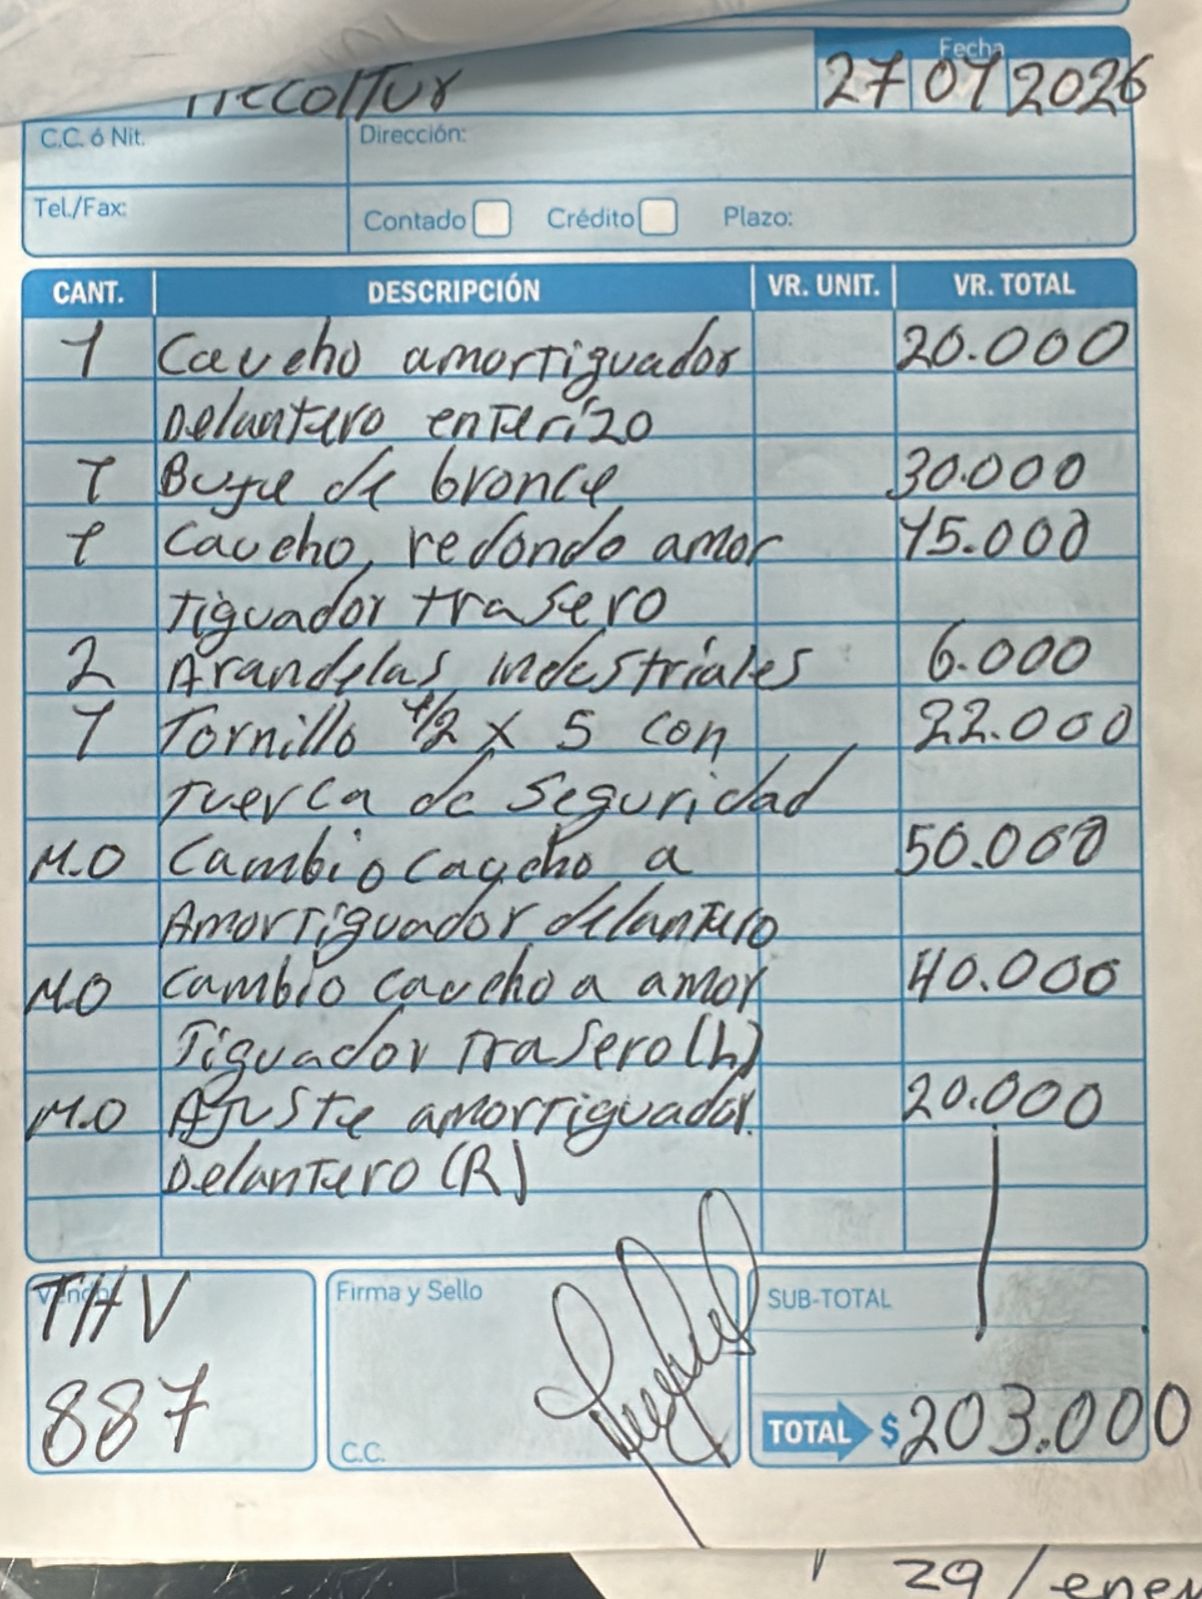 Fecha
MecolTur 27 01 2026
C.C. ó Nit. Dirección:
Tel./Fax: Contado Crédito Plazo:
CANT. DESCRIPCIÓN VR. UNIT. VR. TOTAL
1 Caucho amorTiguador 20.000
Delantero enTerizo
1 Buje de bronce 30.000
1 Caucho redondo amor 15.000
Tiguador trasero
2 Arandelas industriales 6.000
1 Tornillo 1/2 x 5 con 22.000
Tuerca de seguridad
M.O Cambio caucho a 50.000
AmorTiguador delanTero
M.O cambio caucho a amor 40.000
Tiguador Trasero (L)
M.O Ajuste amorTiguador 20.000
DelanTero (R)
THV
887
Firma y Sello
C.C.
SUB-TOTAL
TOTAL $ 203.000
29/ener